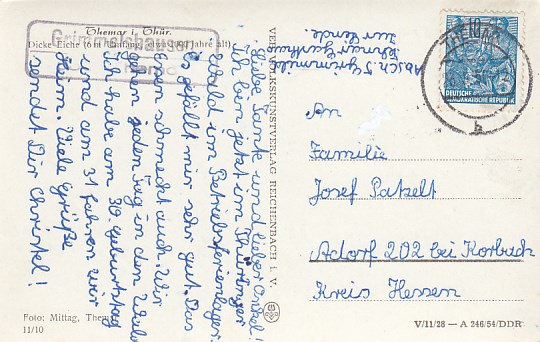 Themar i. Thür.
Dicke Eiche (6 m Umfang, Jahre alt)
Grimmelshausen
Themar
Liebe Tante und lieber Onkel!
Ich bin jetzt im Thüringer
Wald im Betriebsferienlager.
Es gefällt mir sehr gut. Das
Essen schmeckt auch. Wir
gehen jeden Tag in den Wald.
Ich habe am 30. Geburtstag
und am 31. fahren wir
heim. Viele Grüße
sendet Dir Christel!
Foto: Mittag, Themar
11/10
VEB VOLKSKUNSTVERLAG REICHENBACH I. V.
Absch. Grimmels
Themar Gasthaus
zur Linde.
THEMAR
b
DEUTSCHE
DEMOKRATISCHE REPUBLIK
An
Familie
Josef Patzelt
Adorf 202 bei Korbach
Kreis Hessen
V/11/28 — A 246/54/DDR